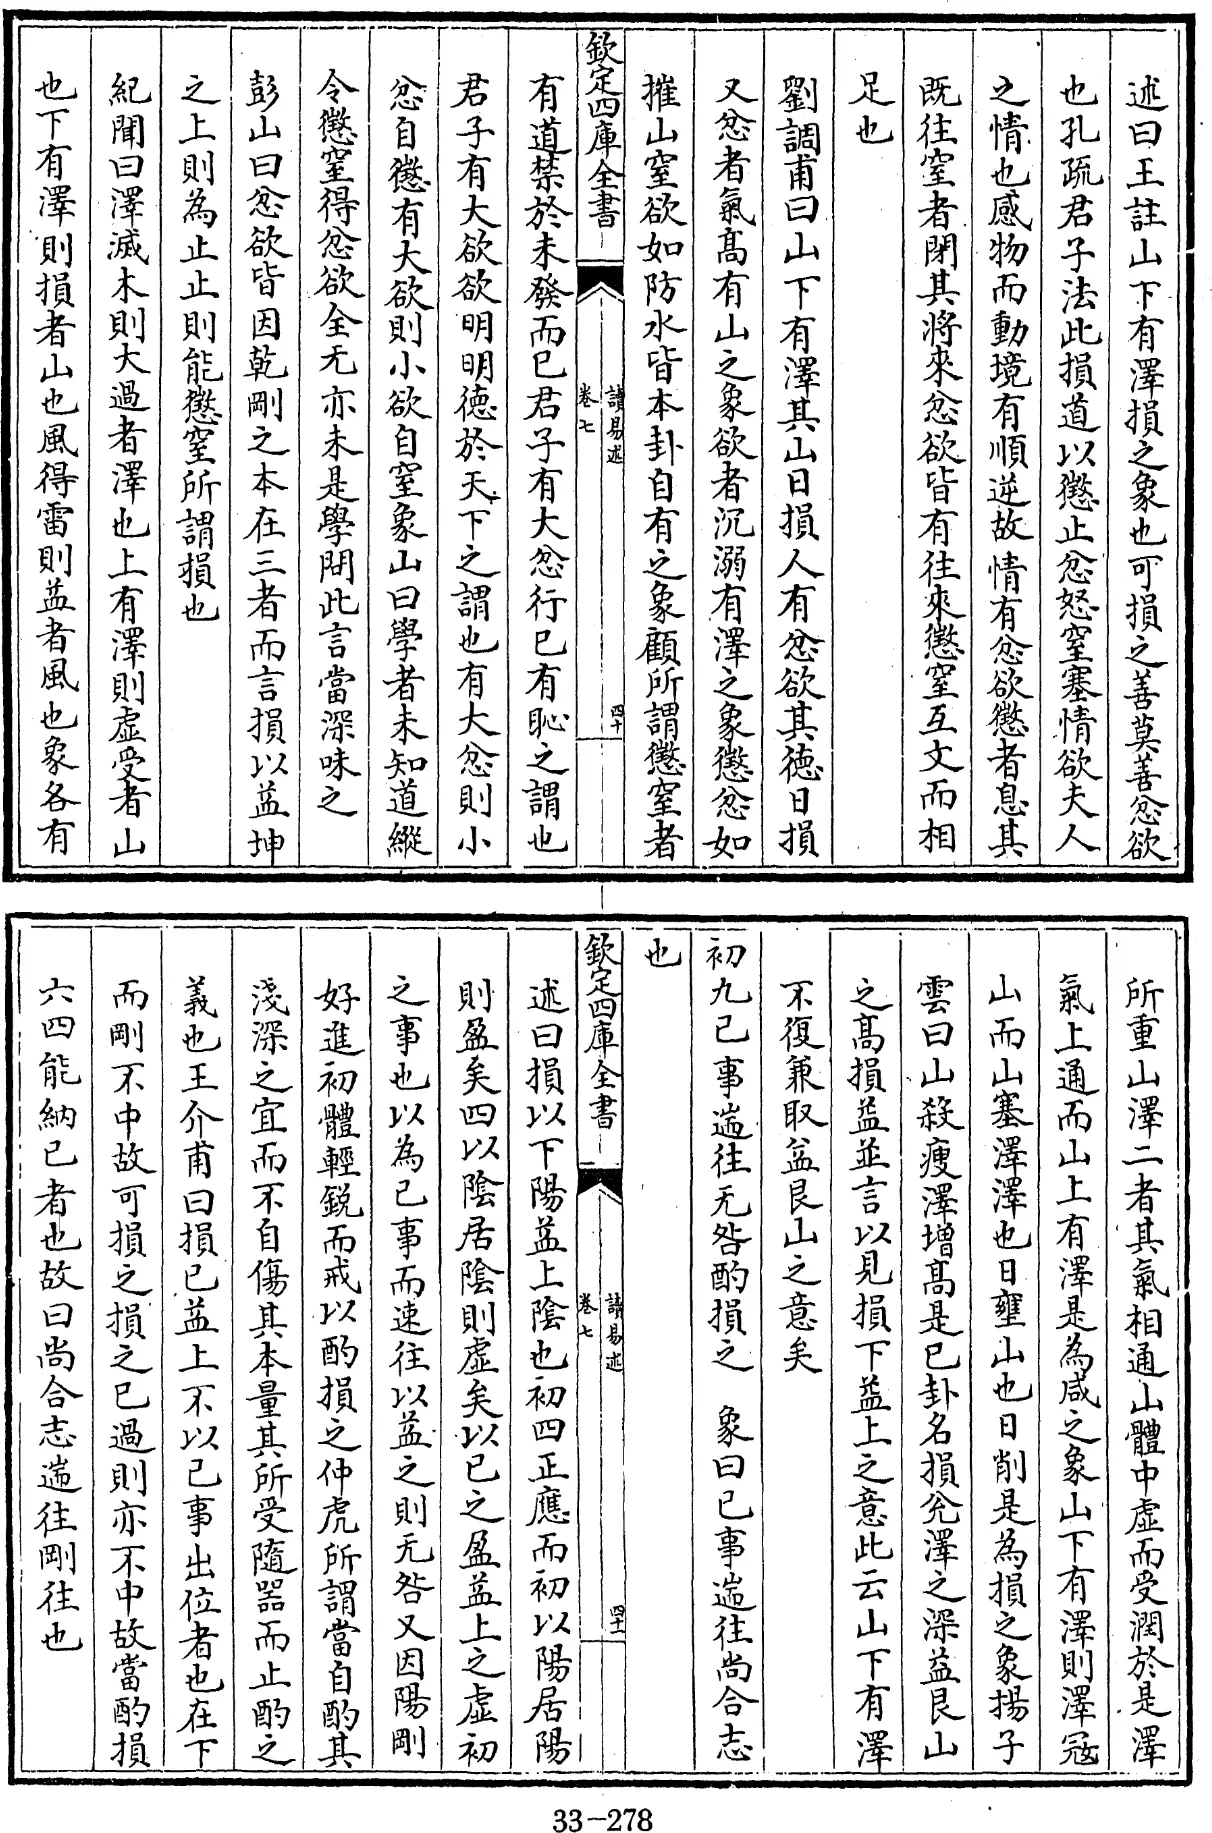 述曰王註山下有澤損之象也可損之善莫善忿欲
也孔疏君子法此損道以懲止忿怒窒塞情欲夫人
之情也感物而動境有順逆故情有忿欲懲者息其
既往窒者閉其將來忿欲皆有往來懲窒互文而相
足也
劉調甫曰山下有澤其山日損人有忿欲其德日損
又忿者氣髙有山之象欲者沉溺有澤之象懲忿如
摧山窒欲如防水皆本卦自有之象顧所謂懲窒者
欽定四庫全書
讀易述
卷七
四十
有道禁於未發而已君子有大忿行已有恥之謂也
君子有大欲欲明明德於天下之謂也有大忿則小
忿自懲有大欲則小欲自窒象山曰學者未知道縱
令懲窒得忿欲全无亦未是學問此言當深味之
彭山曰忿欲皆因乾剛之本在三者而言損以益坤
之上則為止止則能懲窒所謂損也
紀聞曰澤滅木則大過者澤也上有澤則虛受者山
也下有澤則損者山也風得雷則益者風也象各有
所重山澤二者其氣相通山體中虛而受潤於是澤
氣上通而山上有澤是為咸之象山下有澤則澤冦
山而山塞澤澤也日壅山也日削是為損之象揚子
雲曰山殺瘦澤增髙是已卦名損兊澤之深益艮山
之髙損益並言以見損下益上之意此云山下有澤
不復兼取益艮山之意矣
初九已事遄往无咎酌損之　象曰已事遄往尚合志
也
欽定四庫全書
讀易述
卷七
四十一
述曰損以下陽益上陰也初四正應而初以陽居陽
則盈矣四以陰居陰則虛矣以已之盈益上之虛初
之事也以為已事而速往以益之則无咎又因陽剛
好進初體輕銳而戒以酌損之仲虎所謂當自酌其
淺深之宜而不自傷其本量其所受隨器而止酌之
義也王介甫曰損已益上不以已事出位者也在下
而剛不中故可損之損之已過則亦不中故當酌損
六四能納已者也故曰尚合志遄往剛往也
33-278